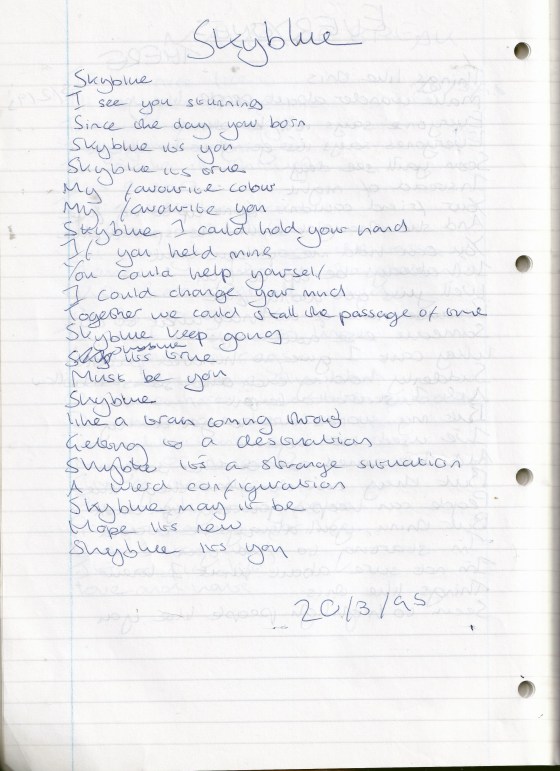 Skyblue
Skyblue
I see you stunning
Since the day your born
Skyblue its you
Skyblue its true
My favourite colour
My favourite you
Skyblue I could hold your hand
If you held mine
You could help yourself
I could change your mind
Together we could stall the passage of time
Skyblue keep going
its true
Must be you
Skyblue
like a train coming through
Getting to a destination
Skyblue its a strange situation
A weird configuration
Skyblue may it be
Hope its new
Skyblue its you
20/3/95